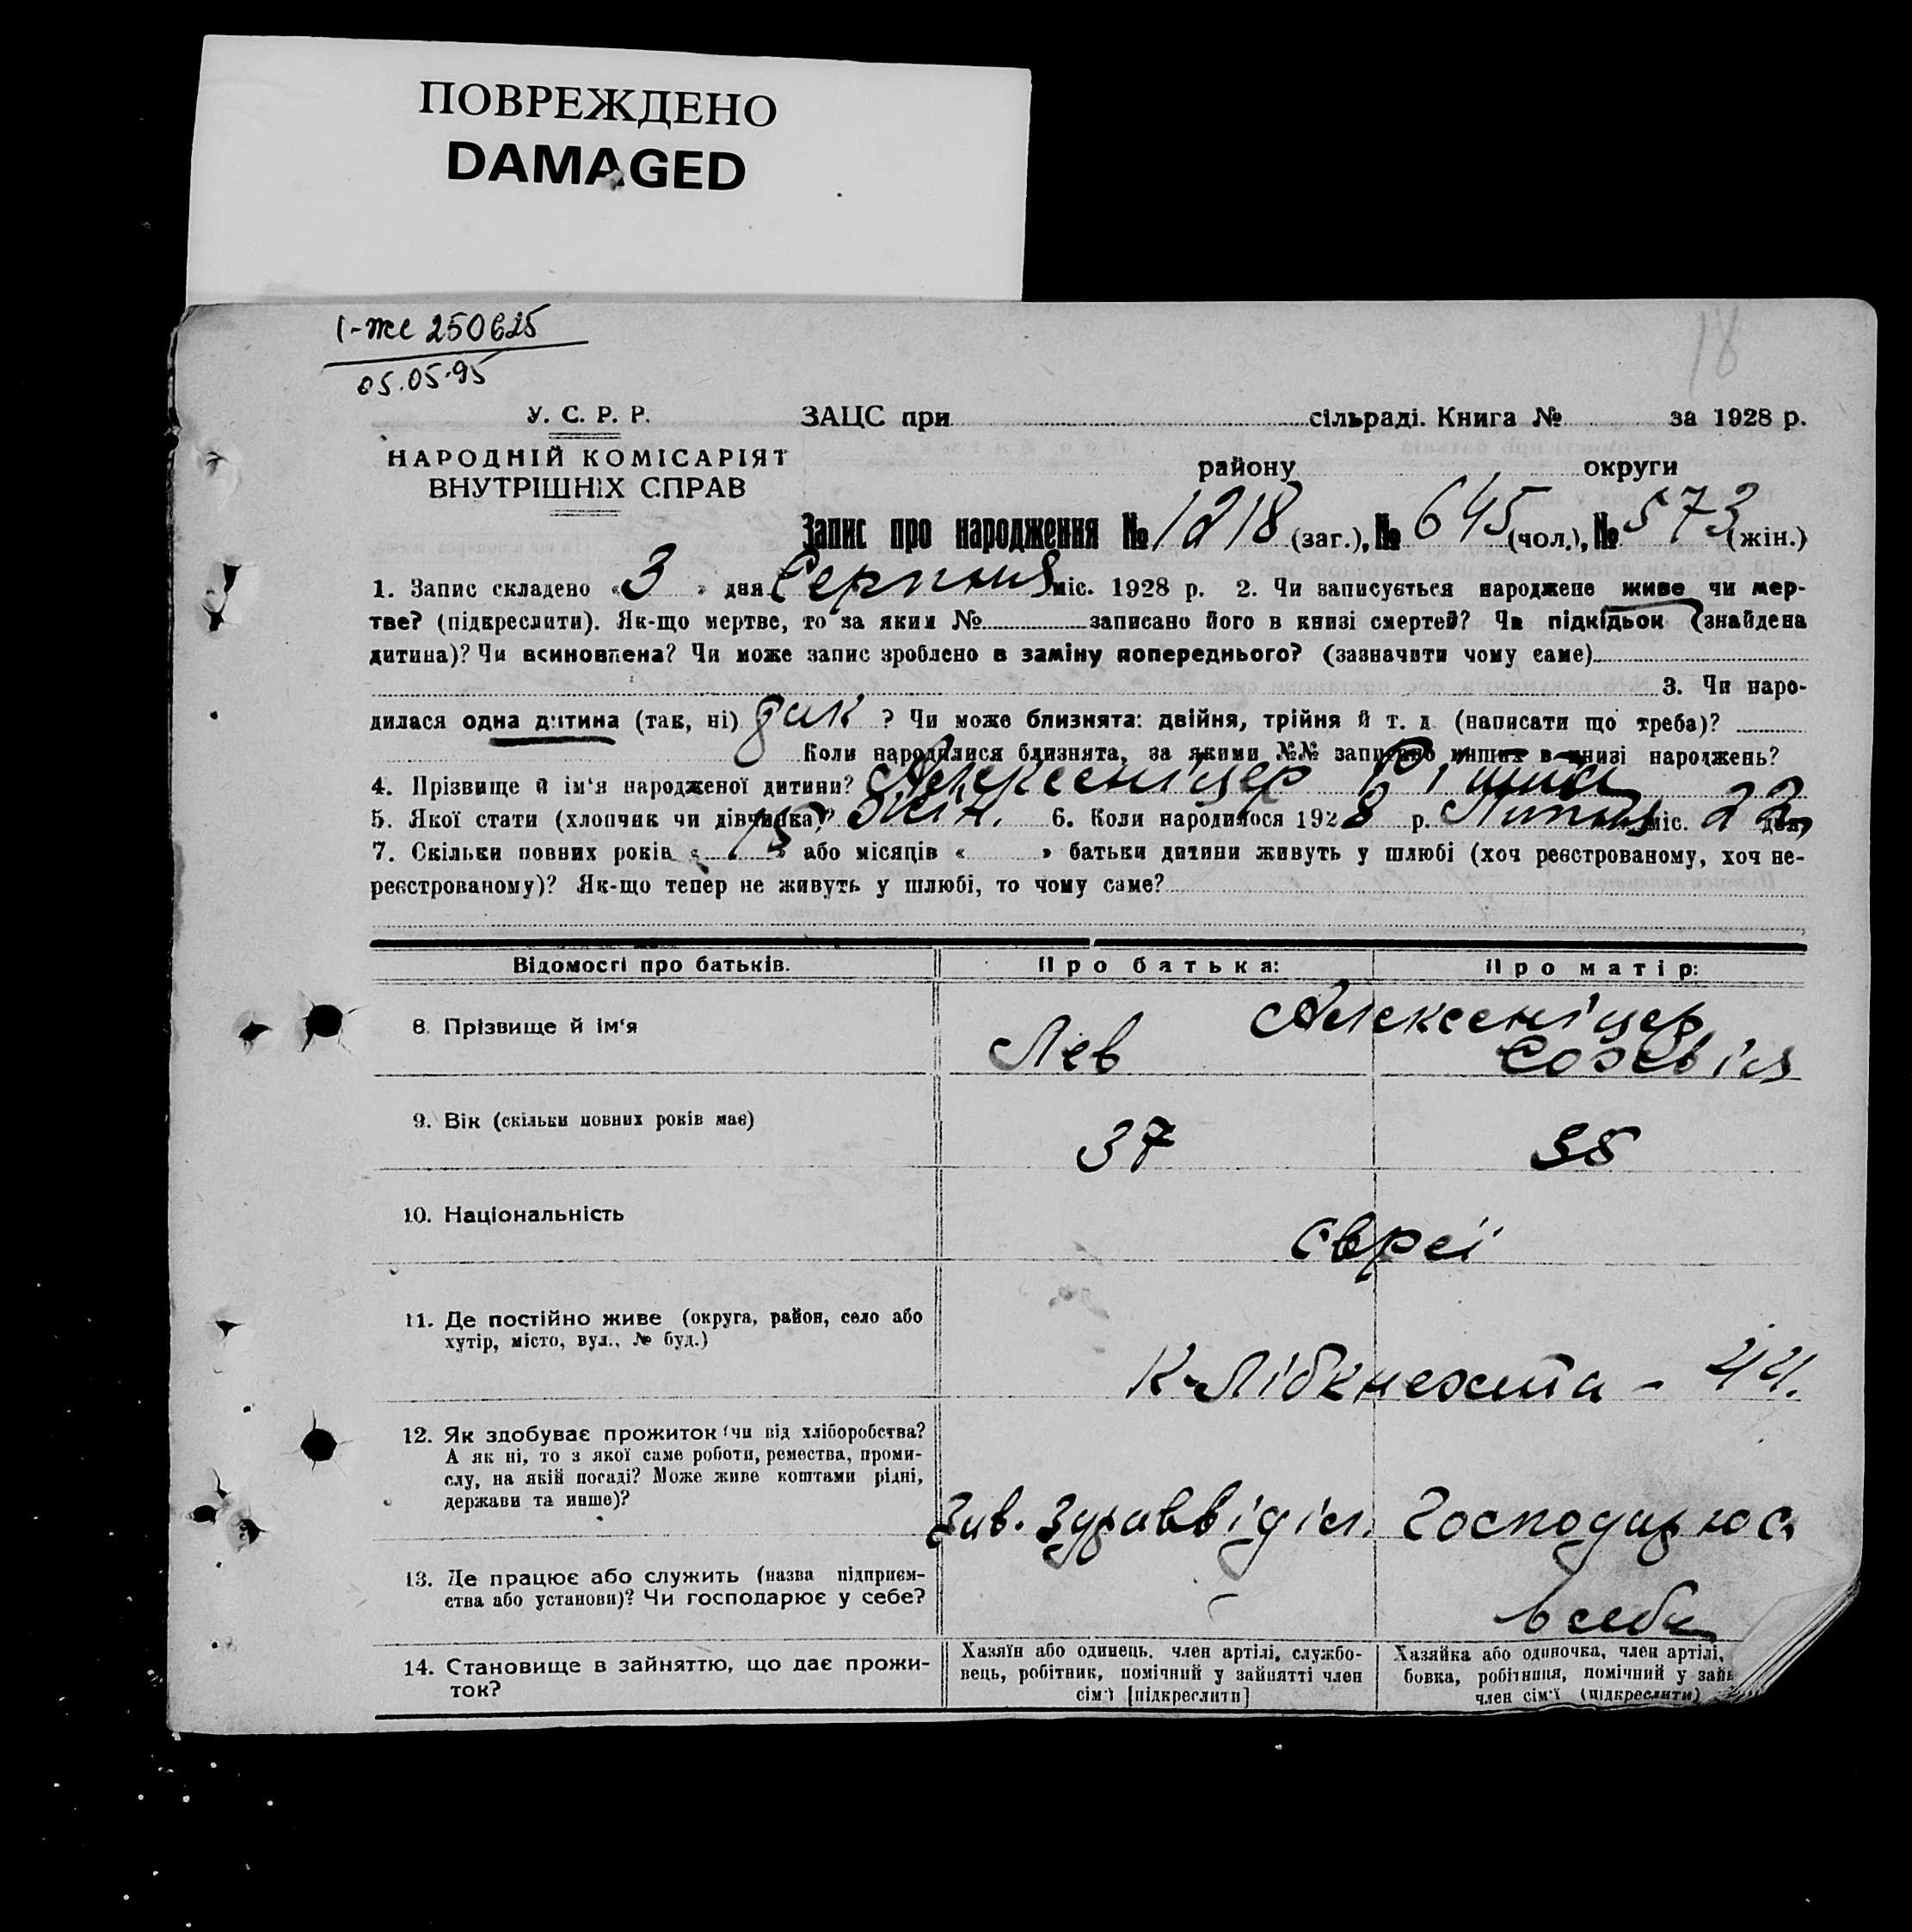 ПОВРЕЖДЕНО
DAMAGED
І-ЖС 250625
05.05.95
18
У. С. Р. Р.
НАРОДНІЙ КОМІСАРІЯТ
ВНУТРІШНІХ СПРАВ
ЗАЦС при сільраді. Книга № за 1928 р.
району округи
Запис про народження № 1218 (заг.), № 645 (чол.), № 573 (жін.)
1. Запис складено « 3 » дня Серпня міс. 1928 р. 2. Чи записується народжене живе чи мер-
тве? (підкреслити). Як-що мертве, то за яким № записано його в книзі смертей? Чи підкідьок (знайдена
дитина)? Чи всиновлена? Чи може запис зроблено в заміну попереднього? (зазначити чому саме)
3. Чи наро-
дилася одна дитина (так, ні) так ? Чи може близнята: двійня, трійня й т. д. (написати що треба)?
Коли народилися близнята, за якими №№ записано инших в книзі народжень?
4. Прізвище й ім'я народженої дитини? Алексеніцер Рімма
5. Якої стати (хлопчик чи дівчинка)? жін. 6. Коли народилося 1928 р. Липня міс. 22 дня
7. Скільки повних років « 15 » або місяців « » батьки дитини живуть у шлюбі (хоч реєстрованому, хоч не-
реєстрованому)? Як-що тепер не живуть у шлюбі, то чому саме?
Відомості про батьків. Про батька: Про матір:
8. Прізвище й ім'я Алексеніцер
Лев Софія
9. Вік (скільки повних років має) 37 35
10. Національність євреї
11. Де постійно живе (округа, район, село або
хутір, місто, вул., № буд.)
К-Лібкнехта - 44.
12. Як здобуває прожиток (чи від хліборобства?
А як ні, то з якої саме роботи, ремества, проми-
слу, на якій посаді? Може живе коштами рідні,
держави та инше)?
Зав. Здраввідділ. Господарює
13. Де працює або служить (назва підприєм-
ства або установи)? Чи господарює у себе?
- в себе
14. Становище в зайняттю, що дає прожи-
ток?
Хазяїн або одинець, член артілі, службо-
вець, робітник, помічний у зайнятті член
сім'ї [підкреслити]
Хазяйка або одиночка, член артілі,
бовка, робітниця, помічний у зайн
член сім'ї (підкреслити)